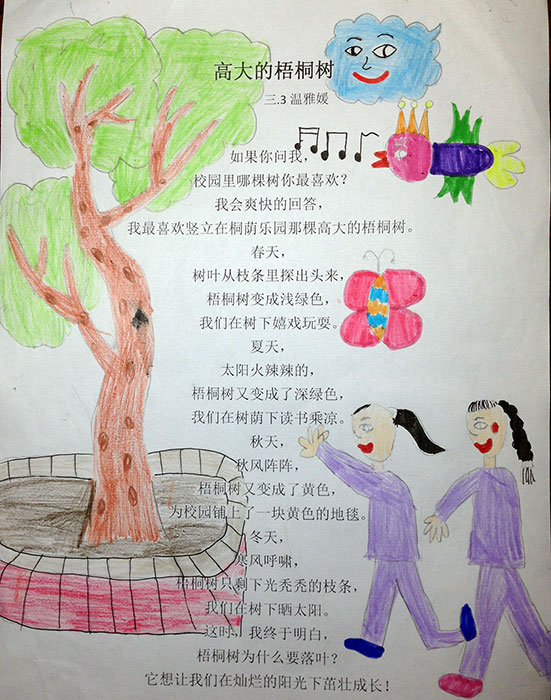 高大的梧桐树
三.3 温雅媛
如果你问我，
校园里哪棵树你最喜欢？
我会爽快的回答，
我最喜欢竖立在桐荫乐园那棵高大的梧桐树。
春天，
树叶从枝条里探出头来，
梧桐树变成浅绿色，
我们在树下嬉戏玩耍。
夏天，
太阳火辣辣的，
梧桐树又变成了深绿色，
我们在树荫下读书乘凉。
秋天，
秋风阵阵，
梧桐树又变成了黄色，
为校园铺上了一块黄色的地毯。
冬天，
寒风呼啸，
梧桐树只剩下光秃秃的枝条，
我们在树下晒太阳。
这时，我终于明白，
梧桐树为什么要落叶？
它想让我们在灿烂的阳光下茁壮成长！